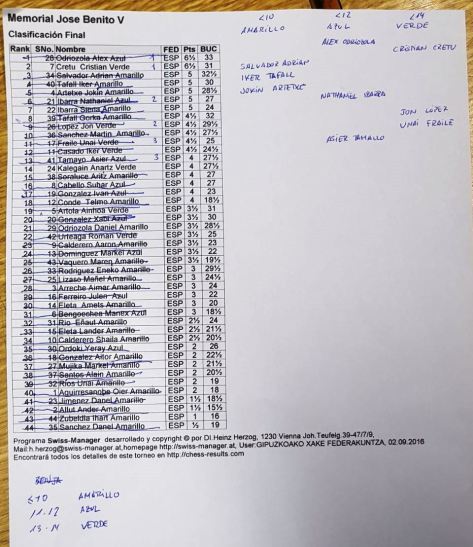 Memorial Jose Benito V
Clasificación Final
<10 <12 <14
AMARILLO AZUL VERDE
ALEX ODRIOZOLA
CRISTIAN CRETU
SALVADOR ADRIAN
IKER TAFALL
JOKIN ARTETXE
NATHANIEL IBARRA
JON LOPEZ
UNAI FRAILE
ASIER TAMALLO
Rank SNo. Nombre FED Pts BUC
1 28 Odriozola Alex Azul 1 ESP 6½ 33
2 7 Cretu Cristian Verde 1 ESP 6½ 31
3 34 Salvador Adrian Amarillo ESP 5 32½
4 40 Tafall Iker Amarillo ESP 5 30
5 4 Artetxe Jokin Amarillo ESP 5 28½
6 21 Ibarra Nathaniel Azul 2 ESP 5 27
7 22 Ibarra Siena Amarillo ESP 5 24
8 39 Tafall Gorka Amarillo ESP 4½ 32
9 26 Lopez Jon Verde 2 ESP 4½ 29½
10 36 Sanchez Martin Amarillo ESP 4½ 27½
11 17 Fraile Unai Verde 3 ESP 4½ 25
12 11 Casado Iker Verde ESP 4½ 24½
13 41 Tamayo Asier Azul 3 ESP 4 27½
14 24 Kalegain Anartz Verde ESP 4 27
15 38 Soraluce Aritz Amarillo ESP 4 27
16 8 Cabello Suhar Azul ESP 4 27
17 19 Gonzalez Ivan Azul ESP 4 23
18 12 Conde Telmo Amarillo ESP 4 18½
19 5 Artola Ainhoa Verde ESP 3½ 31
20 20 Gonzalez Xabi Azul ESP 3½ 30
21 29 Odriozola Daniel Amarillo ESP 3½ 28½
22 42 Urteaga Roman Verde ESP 3½ 25
23 9 Calderero Aaron Amarillo ESP 3½ 23
24 13 Dominguez Markel Azul ESP 3½ 22
25 43 Vaquero Mareq Amarillo ESP 3½ 19½
26 33 Rodriguez Eneko Amarillo ESP 3 29½
27 25 Lizaso Mañel Amarillo ESP 3 24½
28 3 Arreche Aimar Amarillo ESP 3 24
29 16 Ferreiro Julen Azul ESP 3 22
30 14 Eleta Amets Amarillo ESP 3 20
31 6 Bengoechea Manex Azul ESP 3 18½
32 31 Rio Eñaut Amarillo ESP 2½ 24
33 15 Eleta Lander Amarillo ESP 2½ 21½
34 10 Calderero Shaila Amarillo ESP 2½ 20½
35 30 Ordoki Yeray Azul ESP 2 26
36 18 Gonzalez Aitor Amarillo ESP 2 22½
37 27 Mujika Markel Amarillo ESP 2 21½
38 37 Santos Alain Amarillo ESP 2 20½
39 32 Rios Unai Amarillo ESP 2 19
40 1 Aguirresanobe Oier Amarillo ESP 2 18
41 23 Jimenez Danel Amarillo ESP 1½ 18½
42 2 Allut Ander Amarillo ESP 1½ 15½
43 44 Zubeldia Ihart Amarillo ESP 1 16
44 35 Sanchez Danel Amarillo ESP ½ 19
Programa Swiss-Manager desarrollado y copyright © por DI.Heinz Herzog, 1230 Vienna Joh.Teufelg 39-47/7/9,
Mail:h.herzog@swiss-manager.at,homepage http://swiss-manager.at, User:GIPUZKOAKO XAKE FEDERAKUNTZA, 02.09.2016
Encontrará todos los detalles de este torneo en http://chess-results.com
<10 AMARILLO
11-12 AZUL
13-14 VERDE